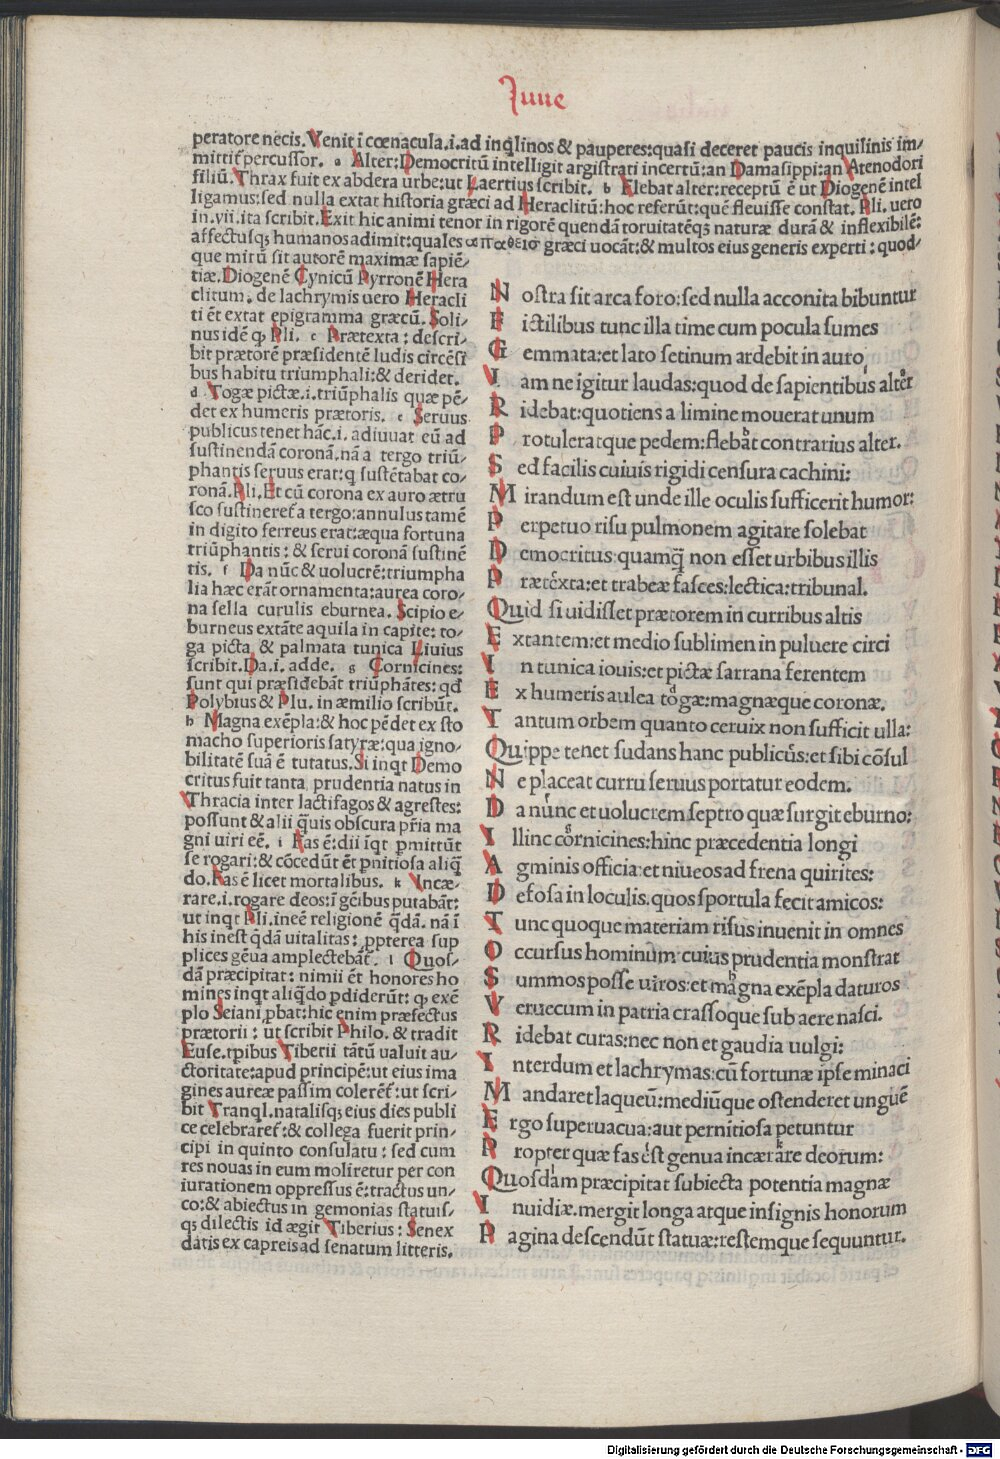 June
peratore necis. Venit ī cœnacula.i.ad inq̄linos & pauperes:quasi deceret paucis inquilinis im⸗
mittit̄ percussor. a Alter:Democritū intelligit argistrati incertū:an Damasippi:an Atenodori
filiū.Thrax fuit ex abdera urbe:ut Laertius scribit. b Flebat alter:receptū ē ut Diogenē intel
ligamus:sed nulla extat historia græci ad Heraclitū:hoc referūt:quē fleuisse constat. Pli. uero
in.vii.ita scribit.Exit hic animi tenor in rigorē quendā toruitatēq; naturæ durā & inflexibilē:
affectusq; humanos adimit:quales απαθεισ græci uocāt:& multos eius generis experti : quod⸗
que mirū sit autorē maximæ sapiē⸗
tiæ.Diogenē Cynicū Pyrronē Hera
clitum. de lachrymis uero Heracli
ti ēt extat epigramma græcū. Soli⸗
nus idē q̄ Pli. c Prætexta : descri⸗
bit prætorē præsidentē ludis circēsi
bus habitu triumphali:& deridet.
d Togæ pictæ.i.triūphalis quæ pē⸗
det ex humeris prætoris. e Seruus
publicus tenet hāc.i. adiuuat eū ad
sustinendā coronā.nā a tergo triū⸗
phantis seruus erat:q sustētabat co⸗
ronā.Pli.Et cū corona ex auro ætru
sco sustineret̄ a tergo:annulus tamē
in digito ferreus erat:æqua fortuna
triūphantis : & serui coronā sustinē
tis. f Da nūc & uolucrē:triumpha
lia hæc erāt ornamenta:aurea coro⸗
na sella curulis eburnea. Scipio e⸗
burneus extāte aquila in capite: to⸗
ga picta & palmata tunica Liuius
scribit.Da.i. adde. g Cornicines:
sunt qui præsidebāt triūphātes: qd
Polybius & Plu. in æmilio scribūt.
h Magna exēpla:& hoc pēdet ex sto
macho superioris satyræ:qua igno⸗
bilitatē suā ē tutatus.Si inqt Demo
critus fuit tanta prudentia natus in
Thracia inter lactifagos & agrestes:
possunt & alii q̄uis obscura pr̄ia ma
gni uiri eē. i Fas ē:dii īqt pmittūt
se rogari:& cōcedūt ēt pnitiosa aliq̄
do.Fas ē licet mortalibus. k Incæ⸗
rare.i.rogare deos:ī gēibus putabāt:
ut inqt Pli.ineē religionē q̄dā. nā ī
his inest q̄dā uitalitas: ppterea sup
plices gēua amplectebāt̄. l Quos⸗
dā præcipitat: nimii ēt honores ho
mines inqt aliq̄do pdiderūt: q̄ exē
plo Seiani pbat:hic enim præfectus
prætorii : ut scribit Philo. & tradit
Euse.tpibus Tiberii tātū ualuit au⸗
ctoritate:apud principē:ut eius ima
gines aureæ passim coleren̄t:ut scri⸗
bit Tranql.natalisq; eius dies publi
ce celebraret̄:& collega fuerit prin⸗
cipi in quinto consulatu : sed cum
res nouas in eum moliretur per con
iurationem oppressus ē:tractus un⸗
co:& abiectus in gemonias statuis⸗
q; dilectis id ægit Tiberius : Senex
datis ex capreis ad senatum litteris.
N ostra sit arca foro:sed nulla acconita bibuntur
F ictilibus tunc illa time cum pocula sumes
G emmata:et lato setinum ardebit in auro
I am ne igitur laudas:quod de sapientibus alter a
R idebat:quotiens a limine mouerat unum
P rotuleratque pedem:flebat b contrarius alter.
S ed facilis cuiuis rigidi censura cachini:
M irandum est unde ille oculis sufficerit humor:
P erpetuo risu pulmonem agitare solebat
D emocritus:quamq̄ non esset urbibus illis
P rætexta c:et trabeæ fasces:lectica:tribunal.
Quid si uidisset prætorem in curribus altis
E xtantem:et medio sublimen in puluere circi
I n tunica iouis:et pictæ sarrana ferentem
E x humeris aulea togæ d:magnæque coronæ.
T antum orbem quanto ceruix non sufficit ulla:
Quippe tenet sudans hanc publicus e:et sibi cōsul
N e placeat curru seruus portatur eodem.
D a nunc f et uolucrem septro quæ surgit eburno:
I llinc cornicines g:hinc præcedentia longi
A gminis officia:et niueos ad frena quirites:
D efosa in loculis.quos sportula fecit amicos:
T unc quoque materiam risus inuenit in omnes
O ccursus hominum cuius prudentia monstrat
S ummos posse uiros:et magna h exēpla daturos
V eruecum in patria crassoque sub aere nasci.
R idebat curas:nec non et gaudia uulgi:
I nterdum et lachrymas:cū fortunæ ipse minaci
M andaret laqueū:mediūque ostenderet unguē
E rgo superuacua:aut pernitiosa petuntur
P ropter quæ fas i est genua incærare k deorum:
Quosdam l præcipitat subiecta potentia magnæ
I nuidiæ.mergit longa atque insignis honorum
P agina descendūt statuæ:restemque sequuntur.
Digitalisierung gefördert durch die Deutsche Forschungsgemeinschaft - DFG